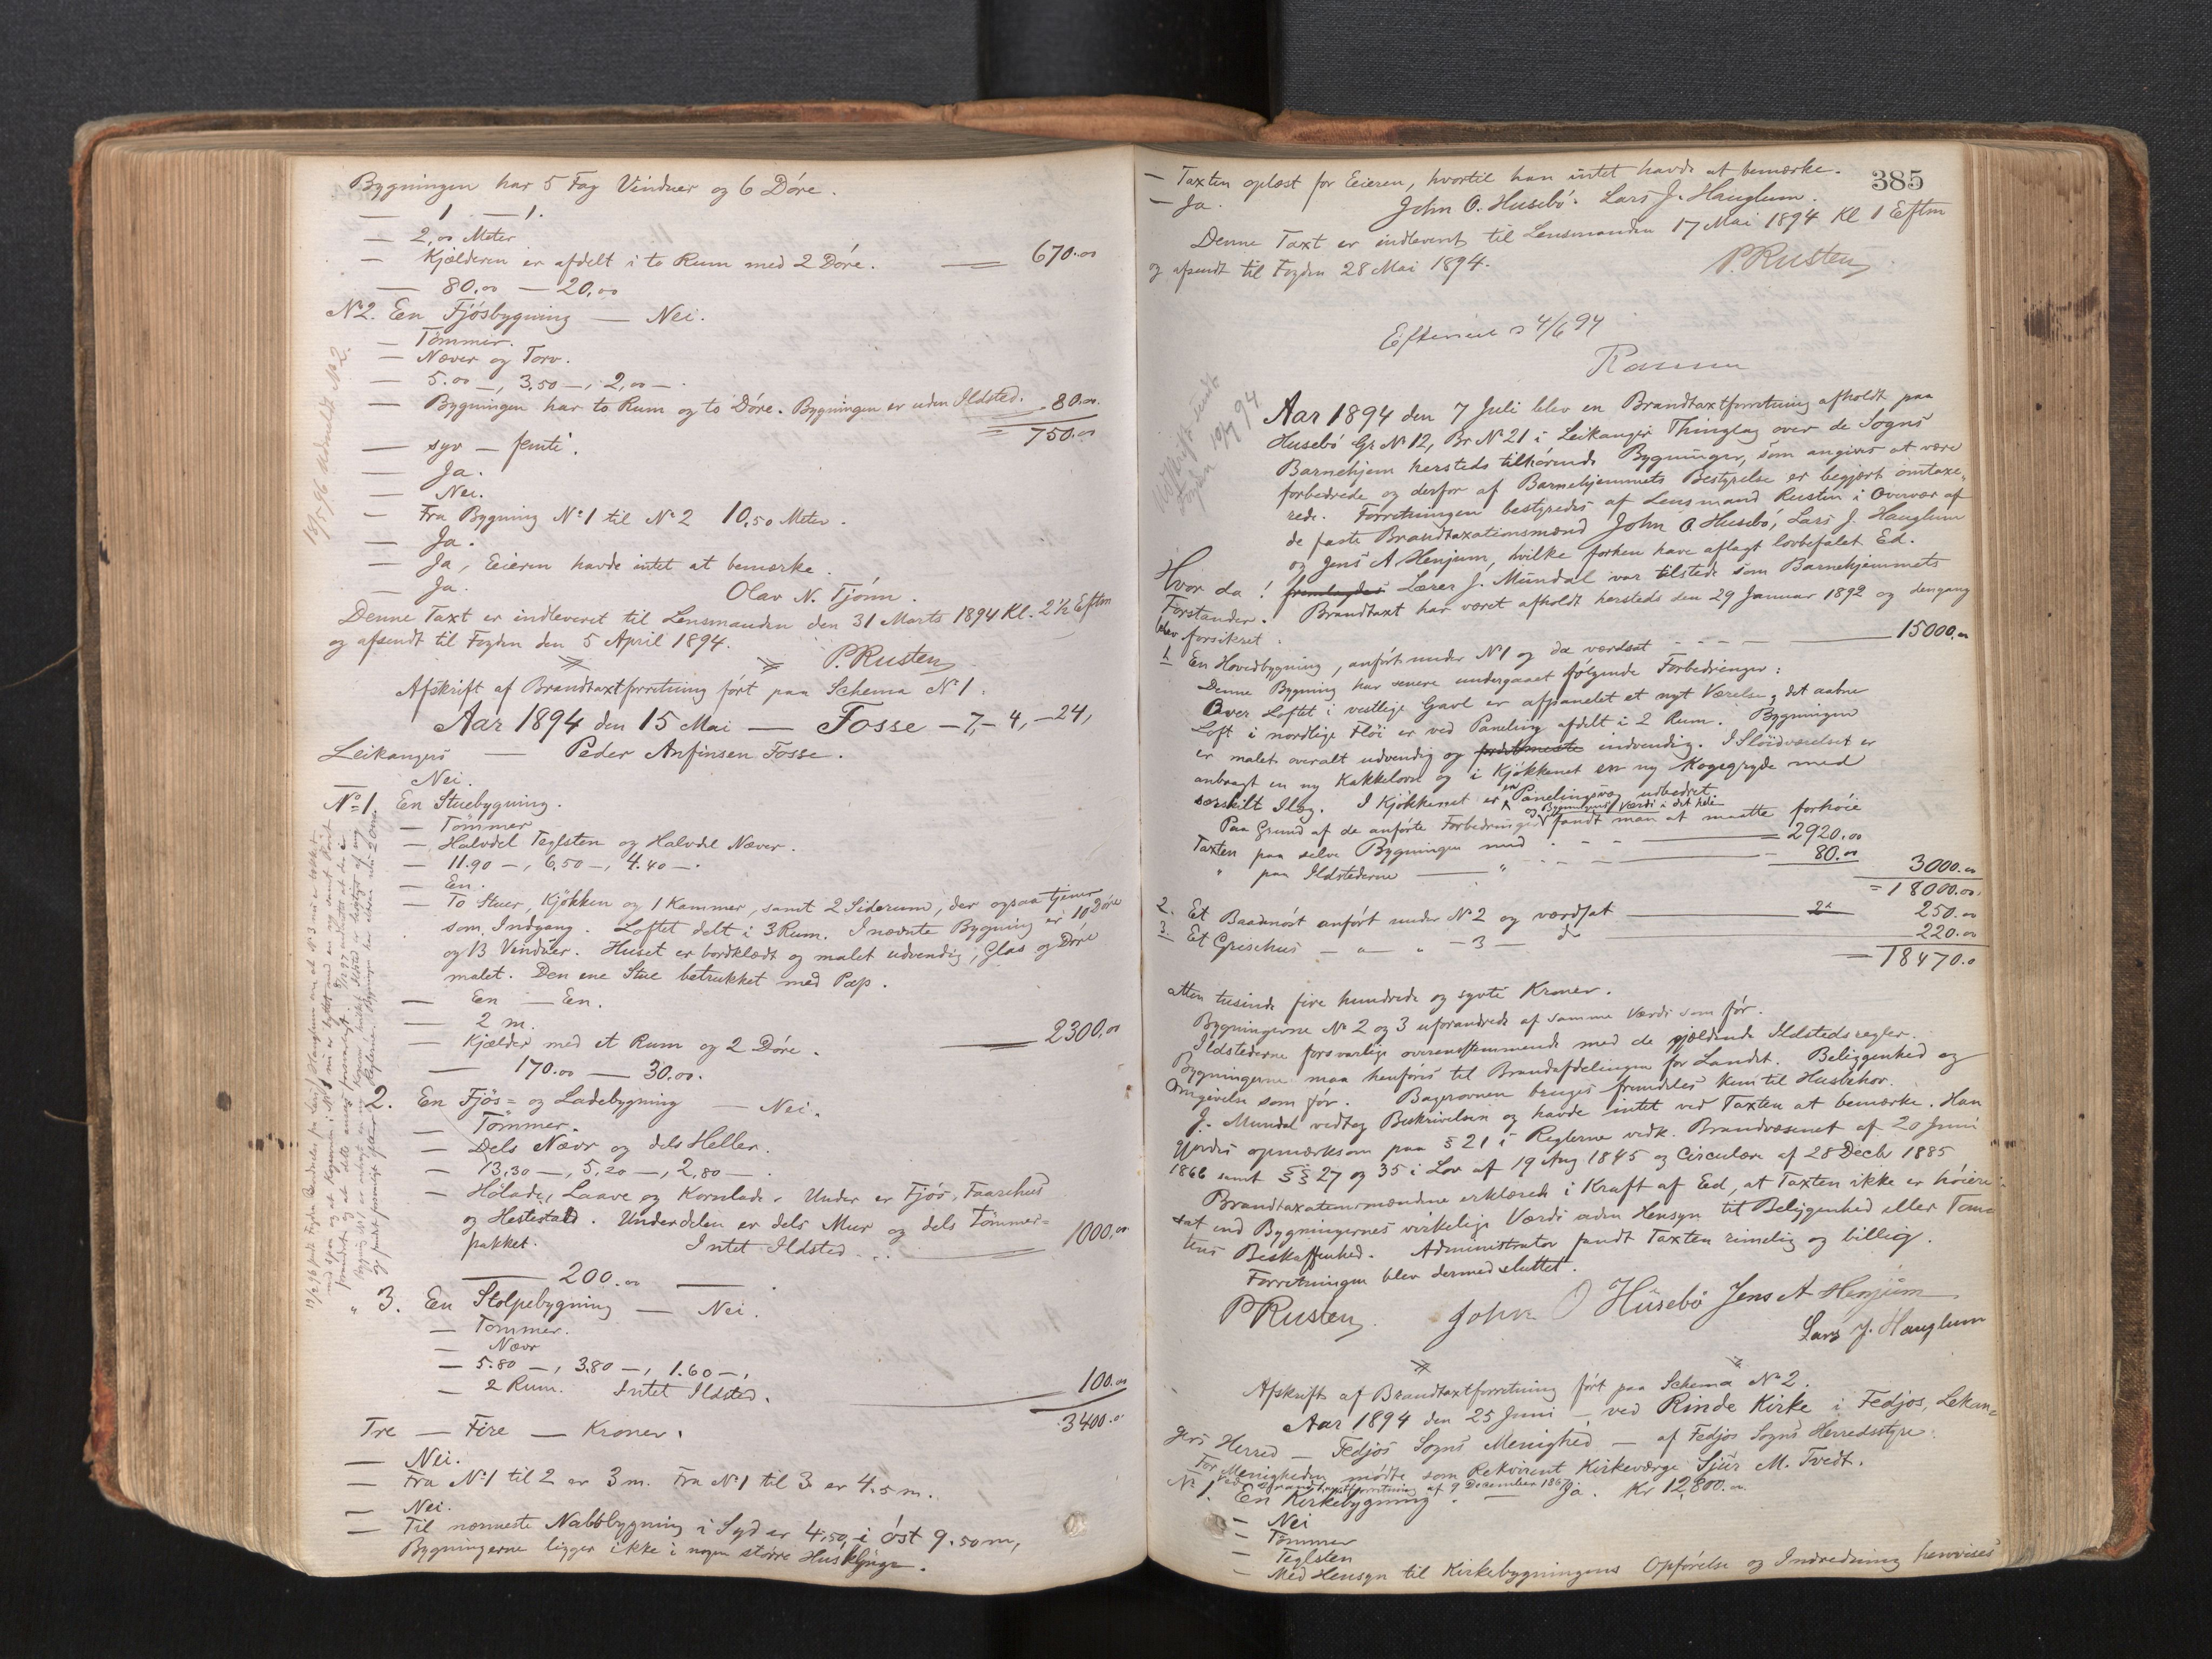 Bygningen har 5 Fag Vinduer og 6 Döre.
— 1 — 1.
— 2,00 Meter
— Kjælderen er afdelt i to Rum med 2 Döre. — 670.00
— 80.00 — 20,00
No 2. En Fjösbygning — Nei.
— Tömmer.
— Næver og Torv.
— 5.00 —, 3.50 —, 2,00 — .
— Bygningen har to Rum og to Döre. Bygningen er uden Ildsted. 80.00
= 750.00
— syv — femti.
— Ja.
— Nei.
— Fra Bygning No 1 til No 2 10,50 Meter.
— Ja.
— Ja, Eieren havde intet at bemærke.
— Ja. Olav N. Tjönn.
Denne Taxt er indleveret til Lensmanden den 31 Marts 1894 Kl. 2 1/2 Eftm
og afsendt til Fogden den 5 April 1894.
P. Rusten
Afskrift af Brandtaxtforretning fört paa Schema No 1.
Aar 1894 den 15 Mai — Fosse — 7, — 4, — 24,
Leikanger — Peder Anfinsen Fosse.
Nei.
No 1. En Stuebygning.
— Tömmer
— Halvdel Teglsten og Halvdel Næver.
— 11.90 —, 6,50 —, 4.40 — .
— En.
— To Stuer, Kjökken og 1 Kammer, samt 2 Siderum, der ogsaa tjener
som Indgang. Loftet delt i 3 Rum. I nævnte Bygning er 10 Döre
og 13 Vinduer. Huset er bordklædt og malet udvendig, Glas og Döre
malet. Den ene Stue betrukket med Pap.
— En — En.
— 2 m.
— Kjælder med et Rum og 2 Döre. — 2300,00
— 170.00 — 30.00.
2. En Fjös- og Ladebygning — Nei.
— Tömmer.
— Dels Nævr og dels Heller.
— 13,30 —, 5,20 —, 2,80 — .
— Hölade, Laave og Kornlade. Under er Fjös, Faarehus
og Hestestald. Underdelen er dels Mur og dels Tömmer-
pakket. Intet Ildsted. 1000,00
— 200.00 —
" 3. En Stolpebygning — Nei.
— Tömmer.
— Nævr
— 5.80 —, 3.80 —, 1.60 —,
— 2 Rum. Intet Ildsted. 100.00
3400.0
Tre — Fire — Kroner.
— Nei.
— Fra No 1 til 2 er 3 m. Fra No 1 til 3 er 4.5 m.
— Nei.
— Til nærmeste Nabobygning i Syd er 4,50, i öst 9.50 m,
Bygningerne ligger ikke i nogen större Husklynge.
385
— Taxten oplæst for Eieren, hvortil han intet havde at bemærke.
— Ja. John O. Husebö. Lars J. Hauglum.
Denne Taxt er indleveret til Lensmanden 17 Mai 1894 Kl 1 Eftm
og afsendt til Fogden 28 Mai 1894. P. Rusten
4/6 94
Aar 1894 den 7 Juli blev en Brandtaxtforretning afholdt paa
Husebö Gr No 12, Br No 21 i Leikanger Thinglag over de Sogns
Barnehjem hersteds tilhörende Bygninger, som angives at være
forbedrede og derfor af Barnehjemmets Bestyrelse er begjært omtaxe-
rede. Forretningen bestyredes af Lensmand Rusten i Overvær af
de faste Brandtaxationsmænd John O. Husebö, Lars J. Hauglum
og Jens A Henjum, hvilke forhen have aflagt lovbefalet Ed.
Hvor da! fremlagdes Lærer J. Mundal var tilstede som Barnehjemmets
Forstander. Brandtaxt har været afholdt hersteds den 29 Januar 1892 og dengang
blev forsikret:
1. En Hovedbygning, anfört under No 1 og da værdsat — 15000.00
Denne Bygning har senere undergaaet fölgende Forbedringer:
Over Loftet i vestlige Gavl er afpanelet et nyt Værelse, det aabne
Loft i nordlige Flöi er ved Paneling afdelt i 2 Rum. Bygningen
er malet overalt udvendig og indvendig. I Slöidværelset er
anbragt en ny Kakkelovn og i Kjökkenet en ny Kogegryde med
særskilt Ilæg. I Kjökkenet er en Panelingsvæg udbedret.
Paa Grund af de anförte Forbedringer og Bygningens Værdi i det hele fandt man at maatte forhöie
Taxten paa selve Bygningen med — 2920.00
" paa Ildstederne — " — 80.00 3000.00
= 18000.00.
2. Et Baadnöst anfört under No 2 og værdsat — 250.00
3. Et Grisehus — " — " — 3 — do 220.00
— 18470.0
atten tusinde fire hundrede og sytti Kroner.
Bygningerne No 2 og 3 uforandrede af samme Værdi som för.
Ildstederne forsvarlige overensstemmende med de gjældende Ildstedsregler.
Bygningerne maa henföres til Brandafdelingen for Landet. Beliggenhed og
Omgivelse som för. Bagerovnen benyes fremdeles kun til Husbehov.
J. Mundal vedtog Beskrivelsen og havde intet ved Taxten at bemærke. Han
gjordes opmærksom paa § 21 i Reglerne vedk. Brandvæsenet af 20 Juni
1866 samt §§ 27 og 35 i Lov af 19 Aug 1845 og Circulære af 28 Decbr 1885
Brandtaxationsmændene erklærede i Kraft af Ed, at Taxten ikke er höiere
sat end Bygningernes virkelige Værdi uden Hensyn til Beliggenhed eller Tom-
tens Beskaffenhed. Administrator fandt Taxten rimelig og billig.
Forretningen blev dermed sluttet.
P Rusten. John O Husebö Jens A Henjum
Lars J. Hauglum
Afskrift af Brandtaxtforretning fört paa Schema No 2.
Aar 1894 den 25 Juni — ved Rinde Kirke i Fedjos, Lekan-
gers Herred — Fedjos Sogns Menighed — af Fedjos Sogns Herredsstyre.
For Menigheden mödte som Rekvirent Kirkeværge Sjur M. Tvedt.
Ved Brandtaxtforretning af 9 December 186
No 1. En Kirkebygning. — Ja. Kr 12,800.00
— Nei
— Tömmer
— Teglsten
— Med Hensyn til Kirkebygningens Opförelse og Indredning henvises